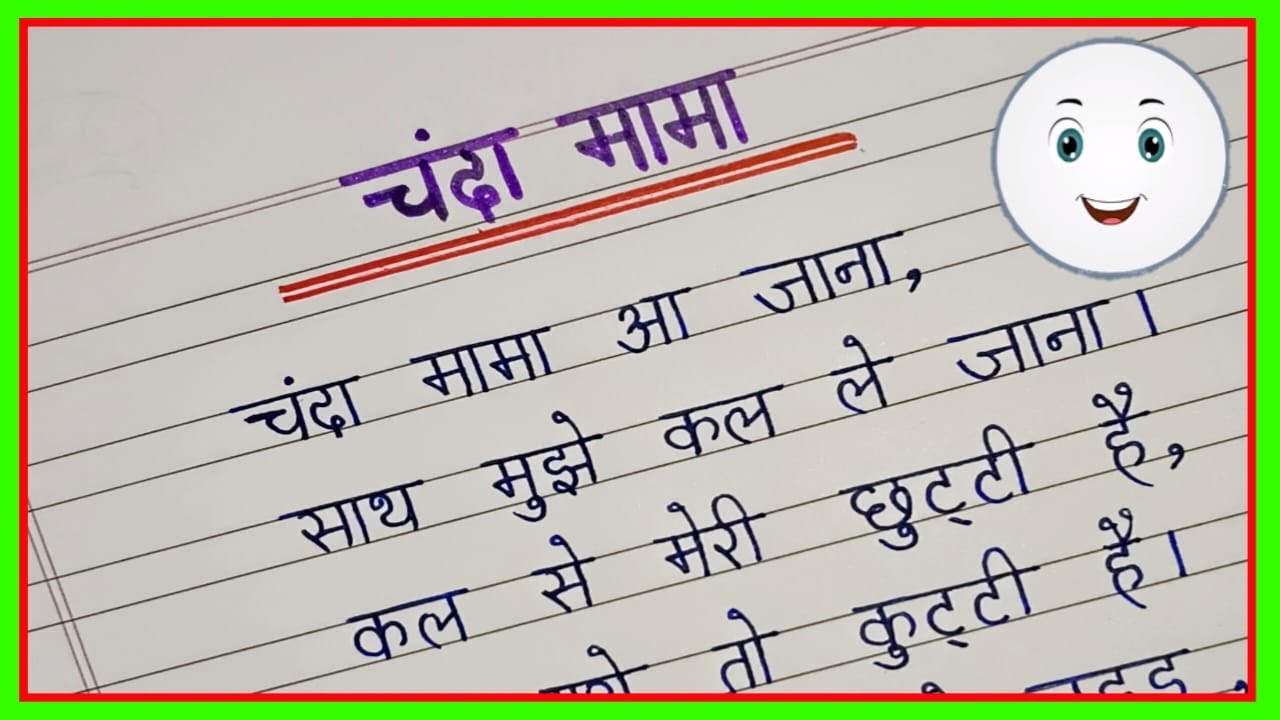 चंदा मामा
चंदा मामा आ जाना,
साथ मुझे कल ले जाना।
कल से मेरी छुट्टी है,
तो कुट्टी है।